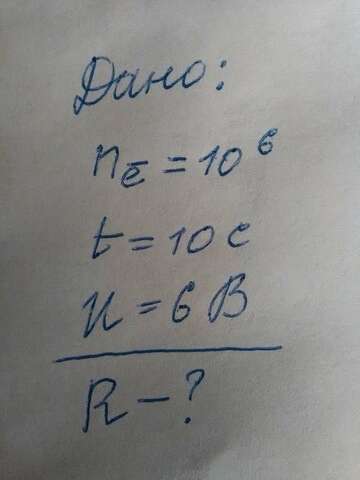 Дано:
nē = 10⁶
t = 10 c
U = 6 В
R - ?